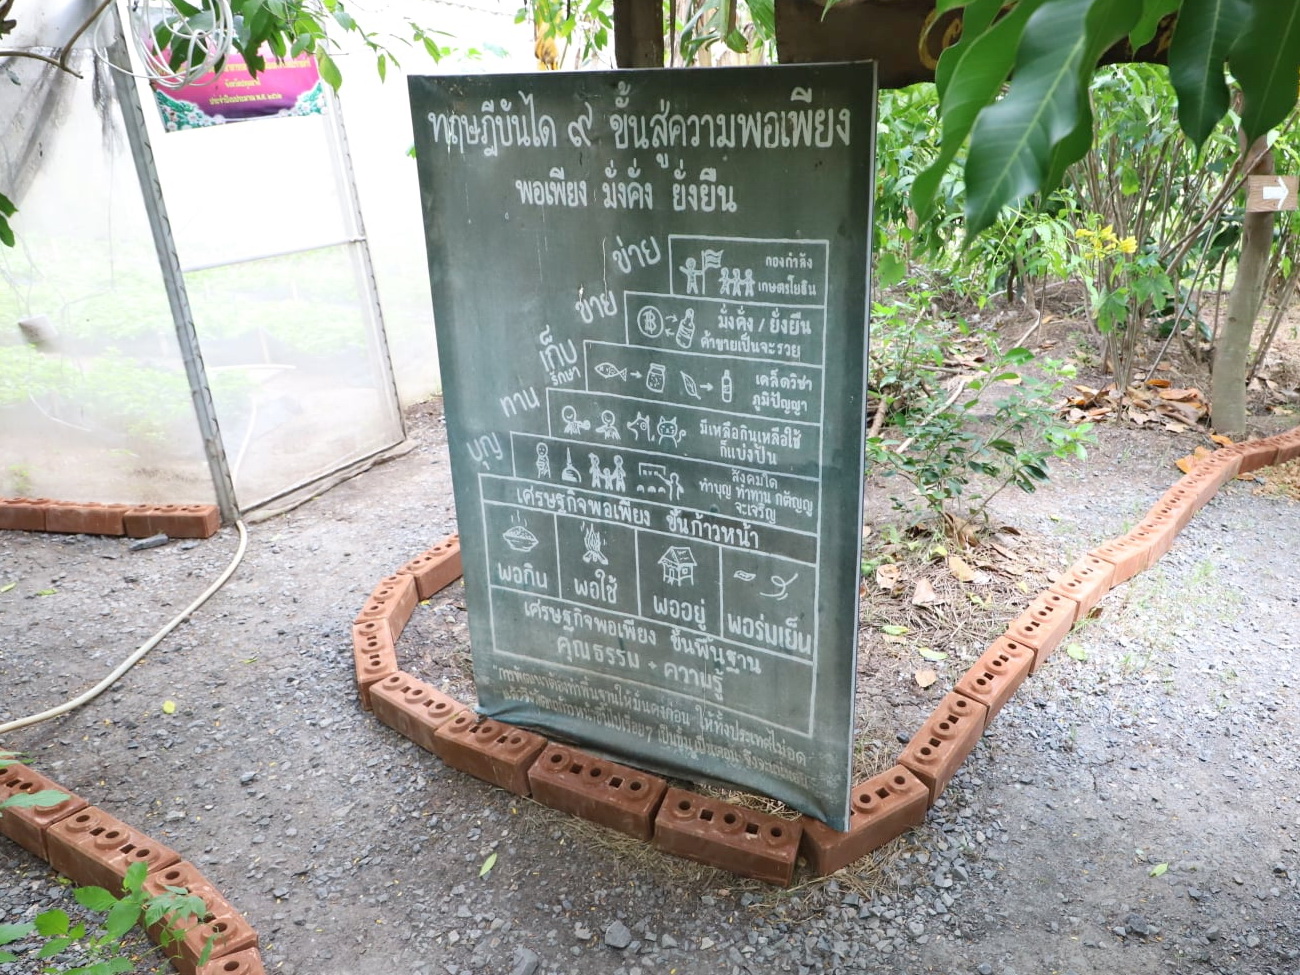 จังหวัดปทุมธานี
ทฤษฎีบันได ๙ ขั้นสู่ความพอเพียง
พอเพียง มั่งคั่ง ยั่งยืน
ข่าย
กองกำลัง
เกษตรโยธิน
ขาย
มั่งคั่ง / ยั่งยืน
ค้าขายเป็นจะรวย
เก็บ
รักษา
เคล็ดวิชา
ภูมิปัญญา
ทาน
มีเหลือกินเหลือใช้
ก็แบ่งปัน
บุญ
สังคมใด
ทำบุญ ทำทาน กตัญญู
จะเจริญ
เศรษฐกิจพอเพียง ขั้นก้าวหน้า
พอกิน
พอใช้
พออยู่
พอร่มเย็น
เศรษฐกิจพอเพียง ขั้นพื้นฐาน
คุณธรรม + ความรู้
"การพัฒนาต้องทำพื้นฐานให้มั่นคงก่อน ให้ทั้งประเทศไม่อด